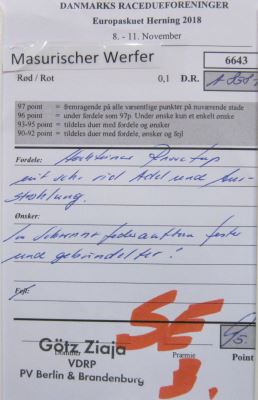 DANMARKS RACEDUEFORENINGER
Europaskuet Herning 2018
8. - 11. November
Masurischer Werfer 6643
Rød / Rot 0,1 D.R.
97 point = fremragende på alle væsentlige punkter på nuværende stade
96 point = under fordele som 97p. Under ønske kun et enkelt ønske
93-95 point = tildeles duer med fordele og ønsker
90-92 point = tildeles duer med fordele, ønsker og fejl
Fordele:
mit sehr viel Adel und Aus-
strahlung.
Ønsker:
fester
und gebündelter!
Fejl:
Götz Ziaja
VDRP
PV Berlin & Brandenburg
Dommer
Præmie
Point